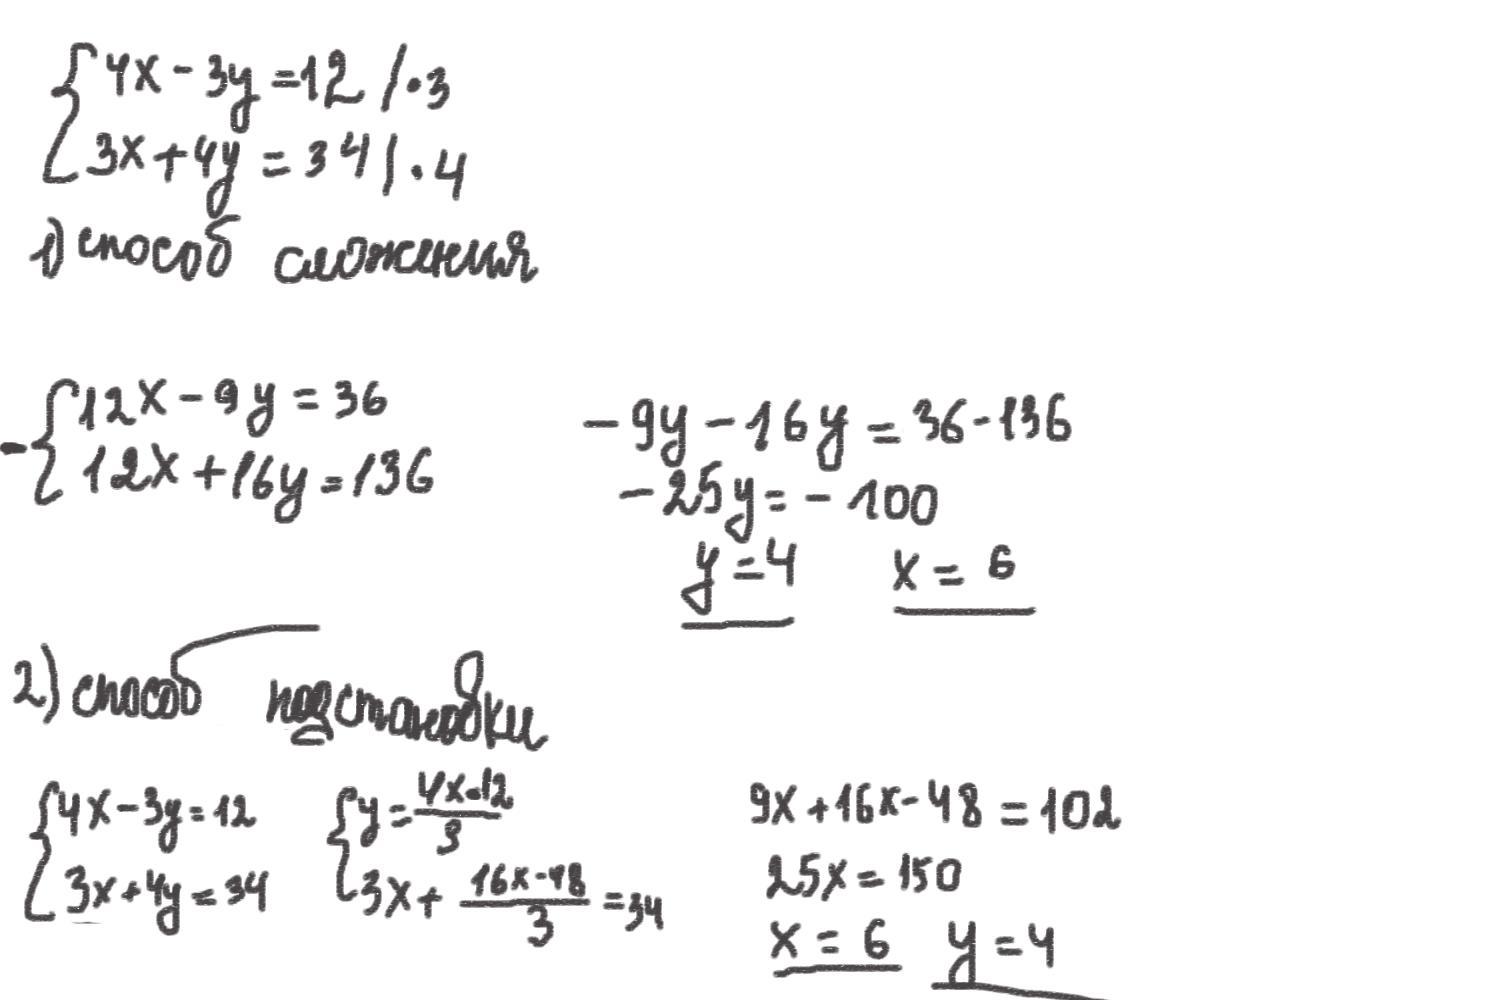 4x - 3y = 12 / · 3
3x + 4y = 34 | · 4
1) способ сложения
- 12x - 9y = 36
12x + 16y = 136
- 9y - 16y = 36 - 136
- 25y = - 100
y = 4 x = 6
2) способ подстановки
4x - 3y = 12
3x + 4y = 34
y = (4x - 12)/3
3x + (16x - 48)/3 = 34
9x + 16x - 48 = 102
25x = 150
x = 6 y = 4